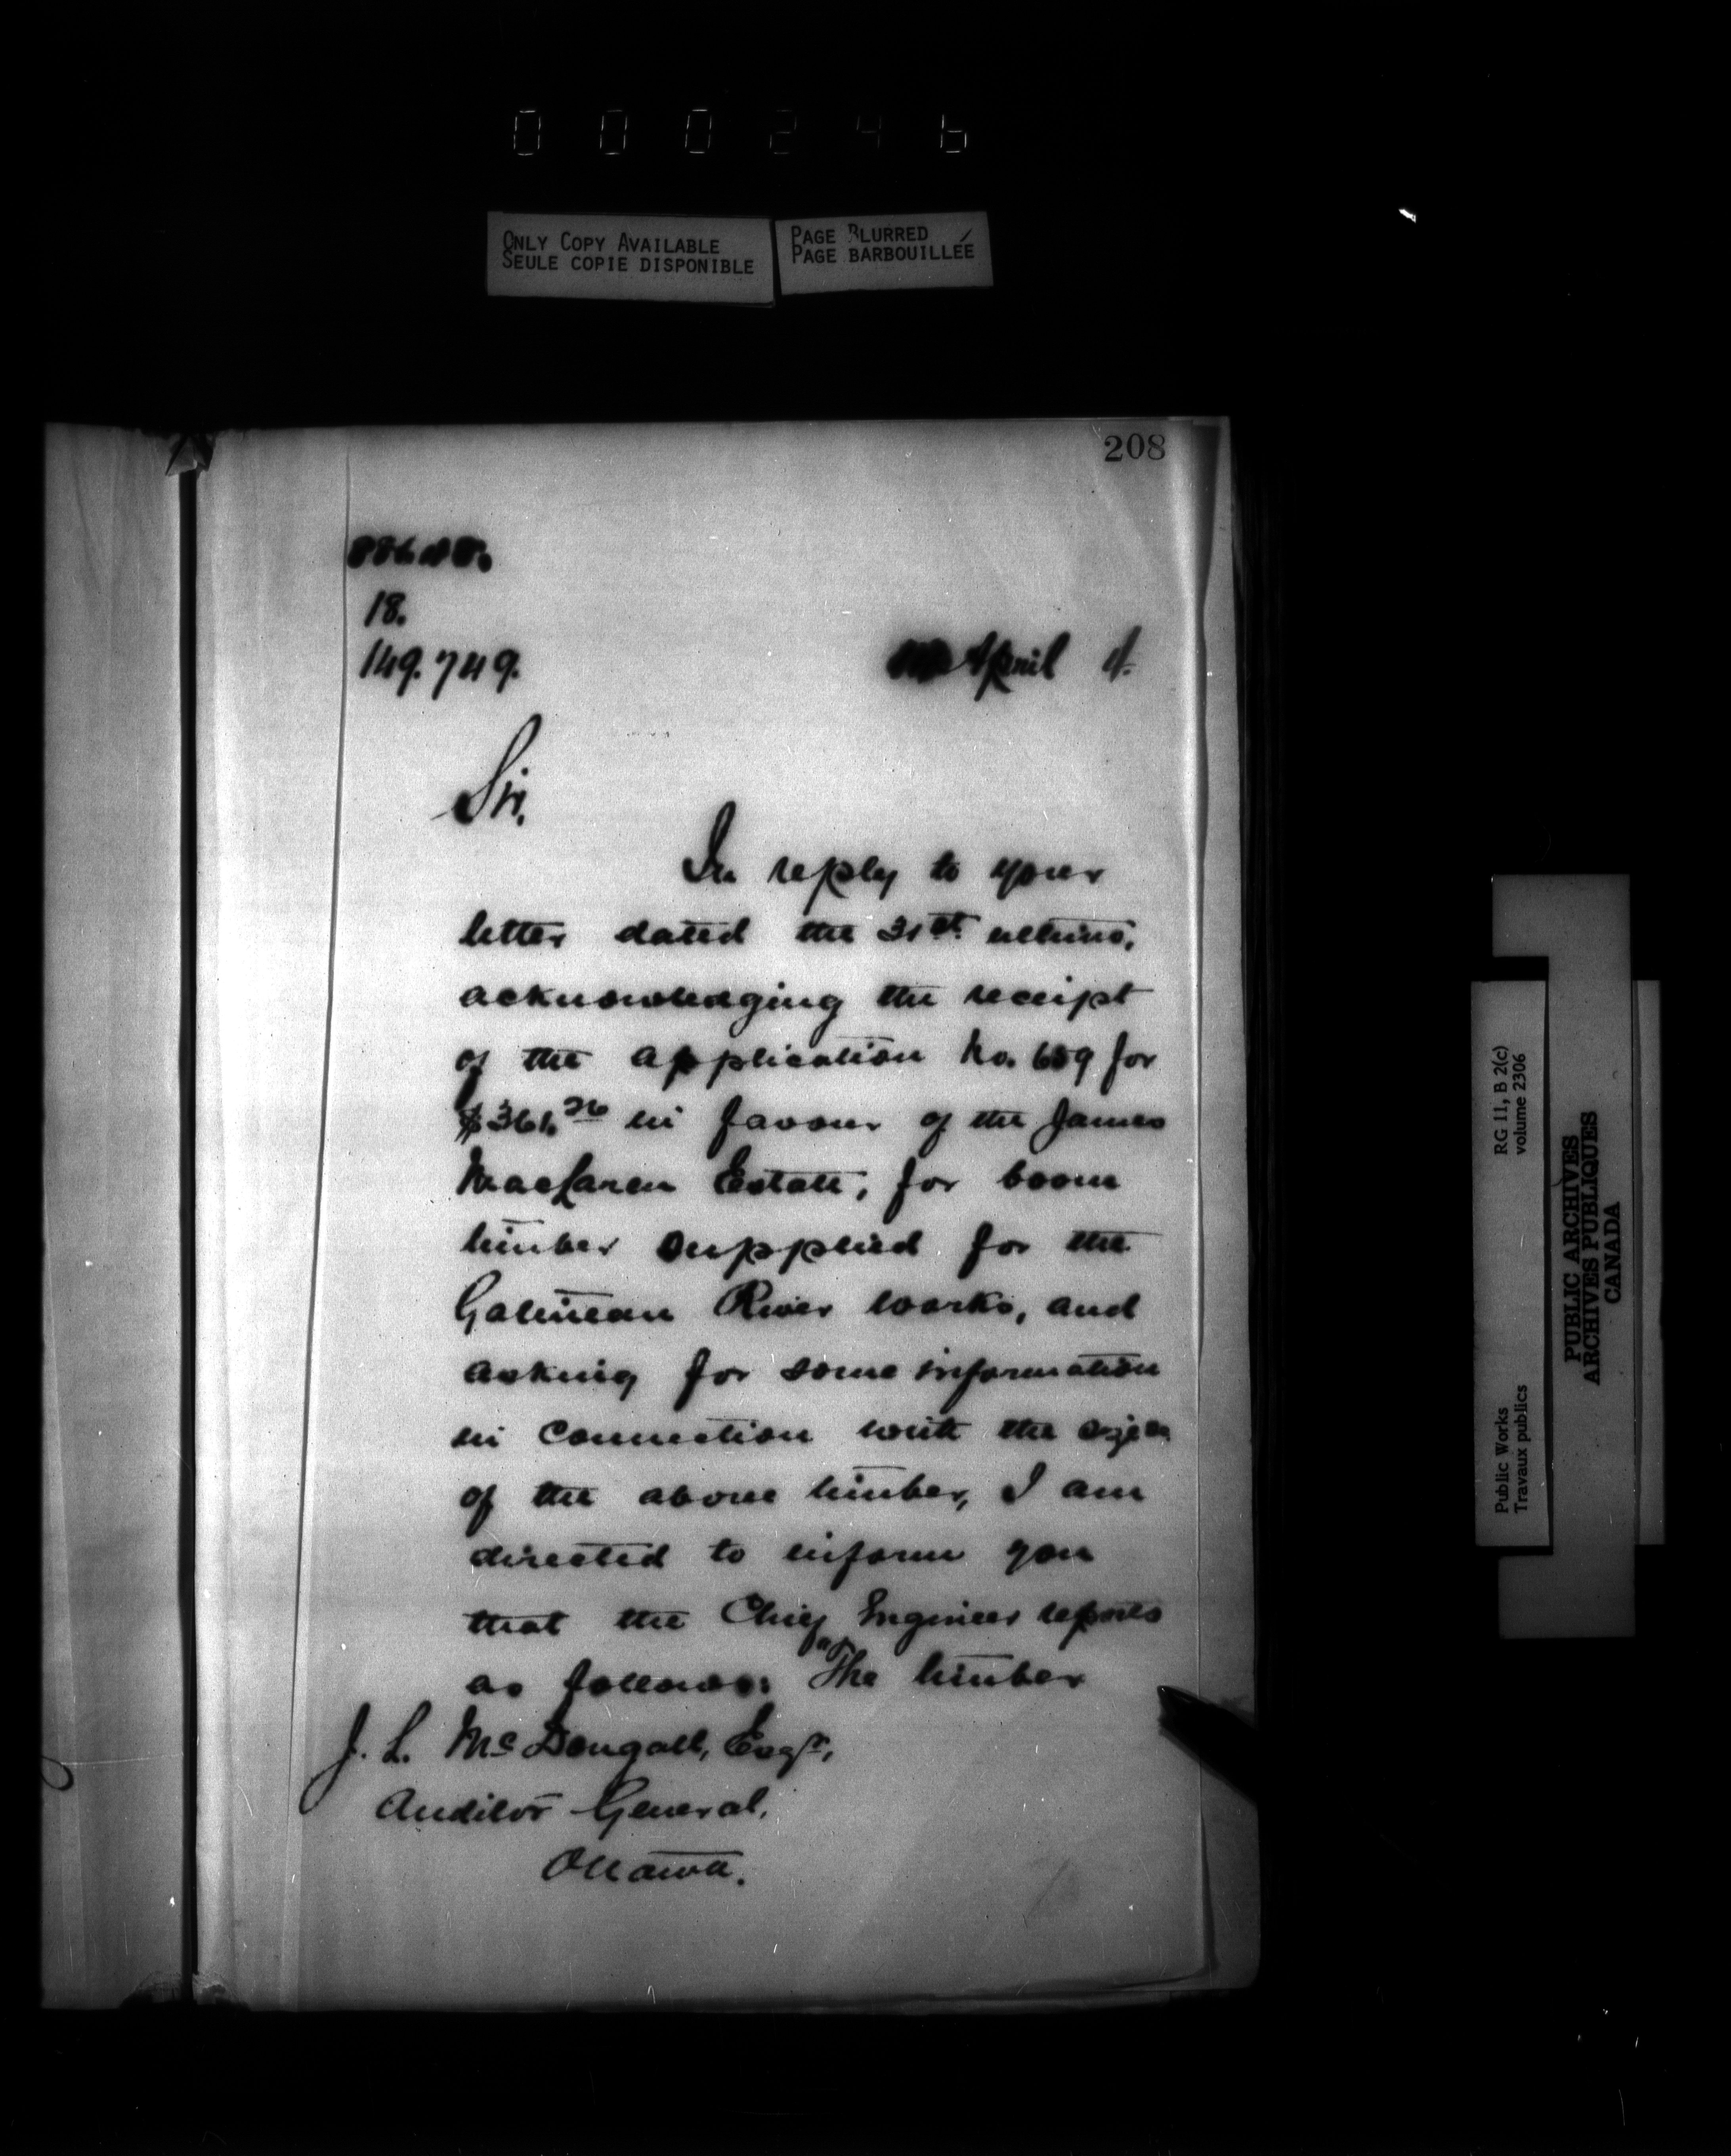 000246
ONLY COPY AVAILABLE
SEULE COPIE DISPONIBLE
PAGE BLURRED
PAGE BARBOUILLÉE
208
18.
149.749.
April 4.
Sir,
In reply to your
letter dated the 31st. ultimo,
acknowledging the receipt
of the application No. 659 for
$361.26 in favour of the James
MacLaren Estate, for boom
timber supplied for the
Gatineau River works, and
asking for some information
in connection with the sizes
of the above timber, I am
directed to inform you
that the Chief Engineer reports
as follows: "The timber
J. L. McDougall, Esqr,
Auditor General,
Ottawa.
Public Works
Travaux publics
RG 11, B 2(c)
volume 2306
PUBLIC ARCHIVES
ARCHIVES PUBLIQUES
CANADA